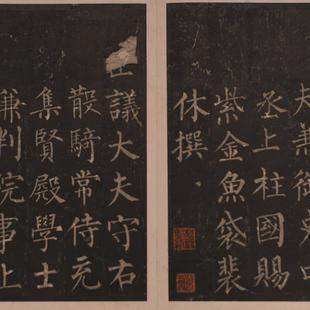 夫兼御史中
丞上柱國賜
紫金魚袋裴
休撰
議大夫守右
散騎常侍充
集賢殿學士
兼判院事上